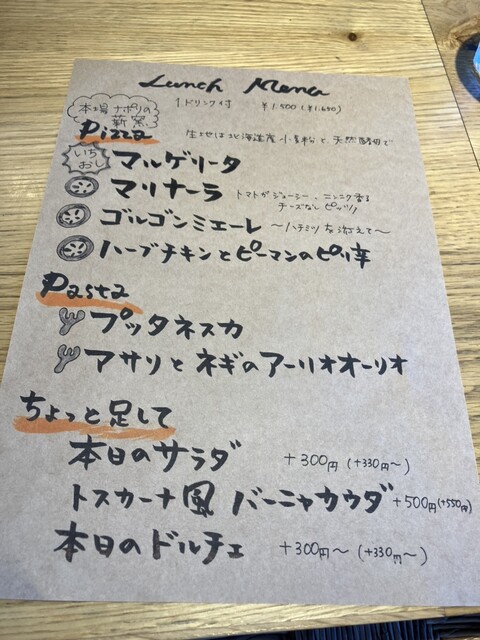 Lunch Menu
1ドリンク付 ¥1,500 (¥1,650)
本場ナポリの
薪窯
Pizza 生地は北海道産小麦粉と天然酵母で
いち
おし
マルゲリータ
マリナーラ トマトがジューシー、ニンニク香る
チーズなしピッツァ
ゴルゴンミエーレ 〜ハチミツを添えて〜
ハーブチキンとピーマンのピリ辛
Pasta
プッタネスカ
アサリとネギのアーリオオーリオ
ちょっと足して
本日のサラダ +300円 (+330円〜)
トスカーナ風 バーニャカウダ +500円 (+550円)
本日のドルチェ +300円〜 (+330円〜)